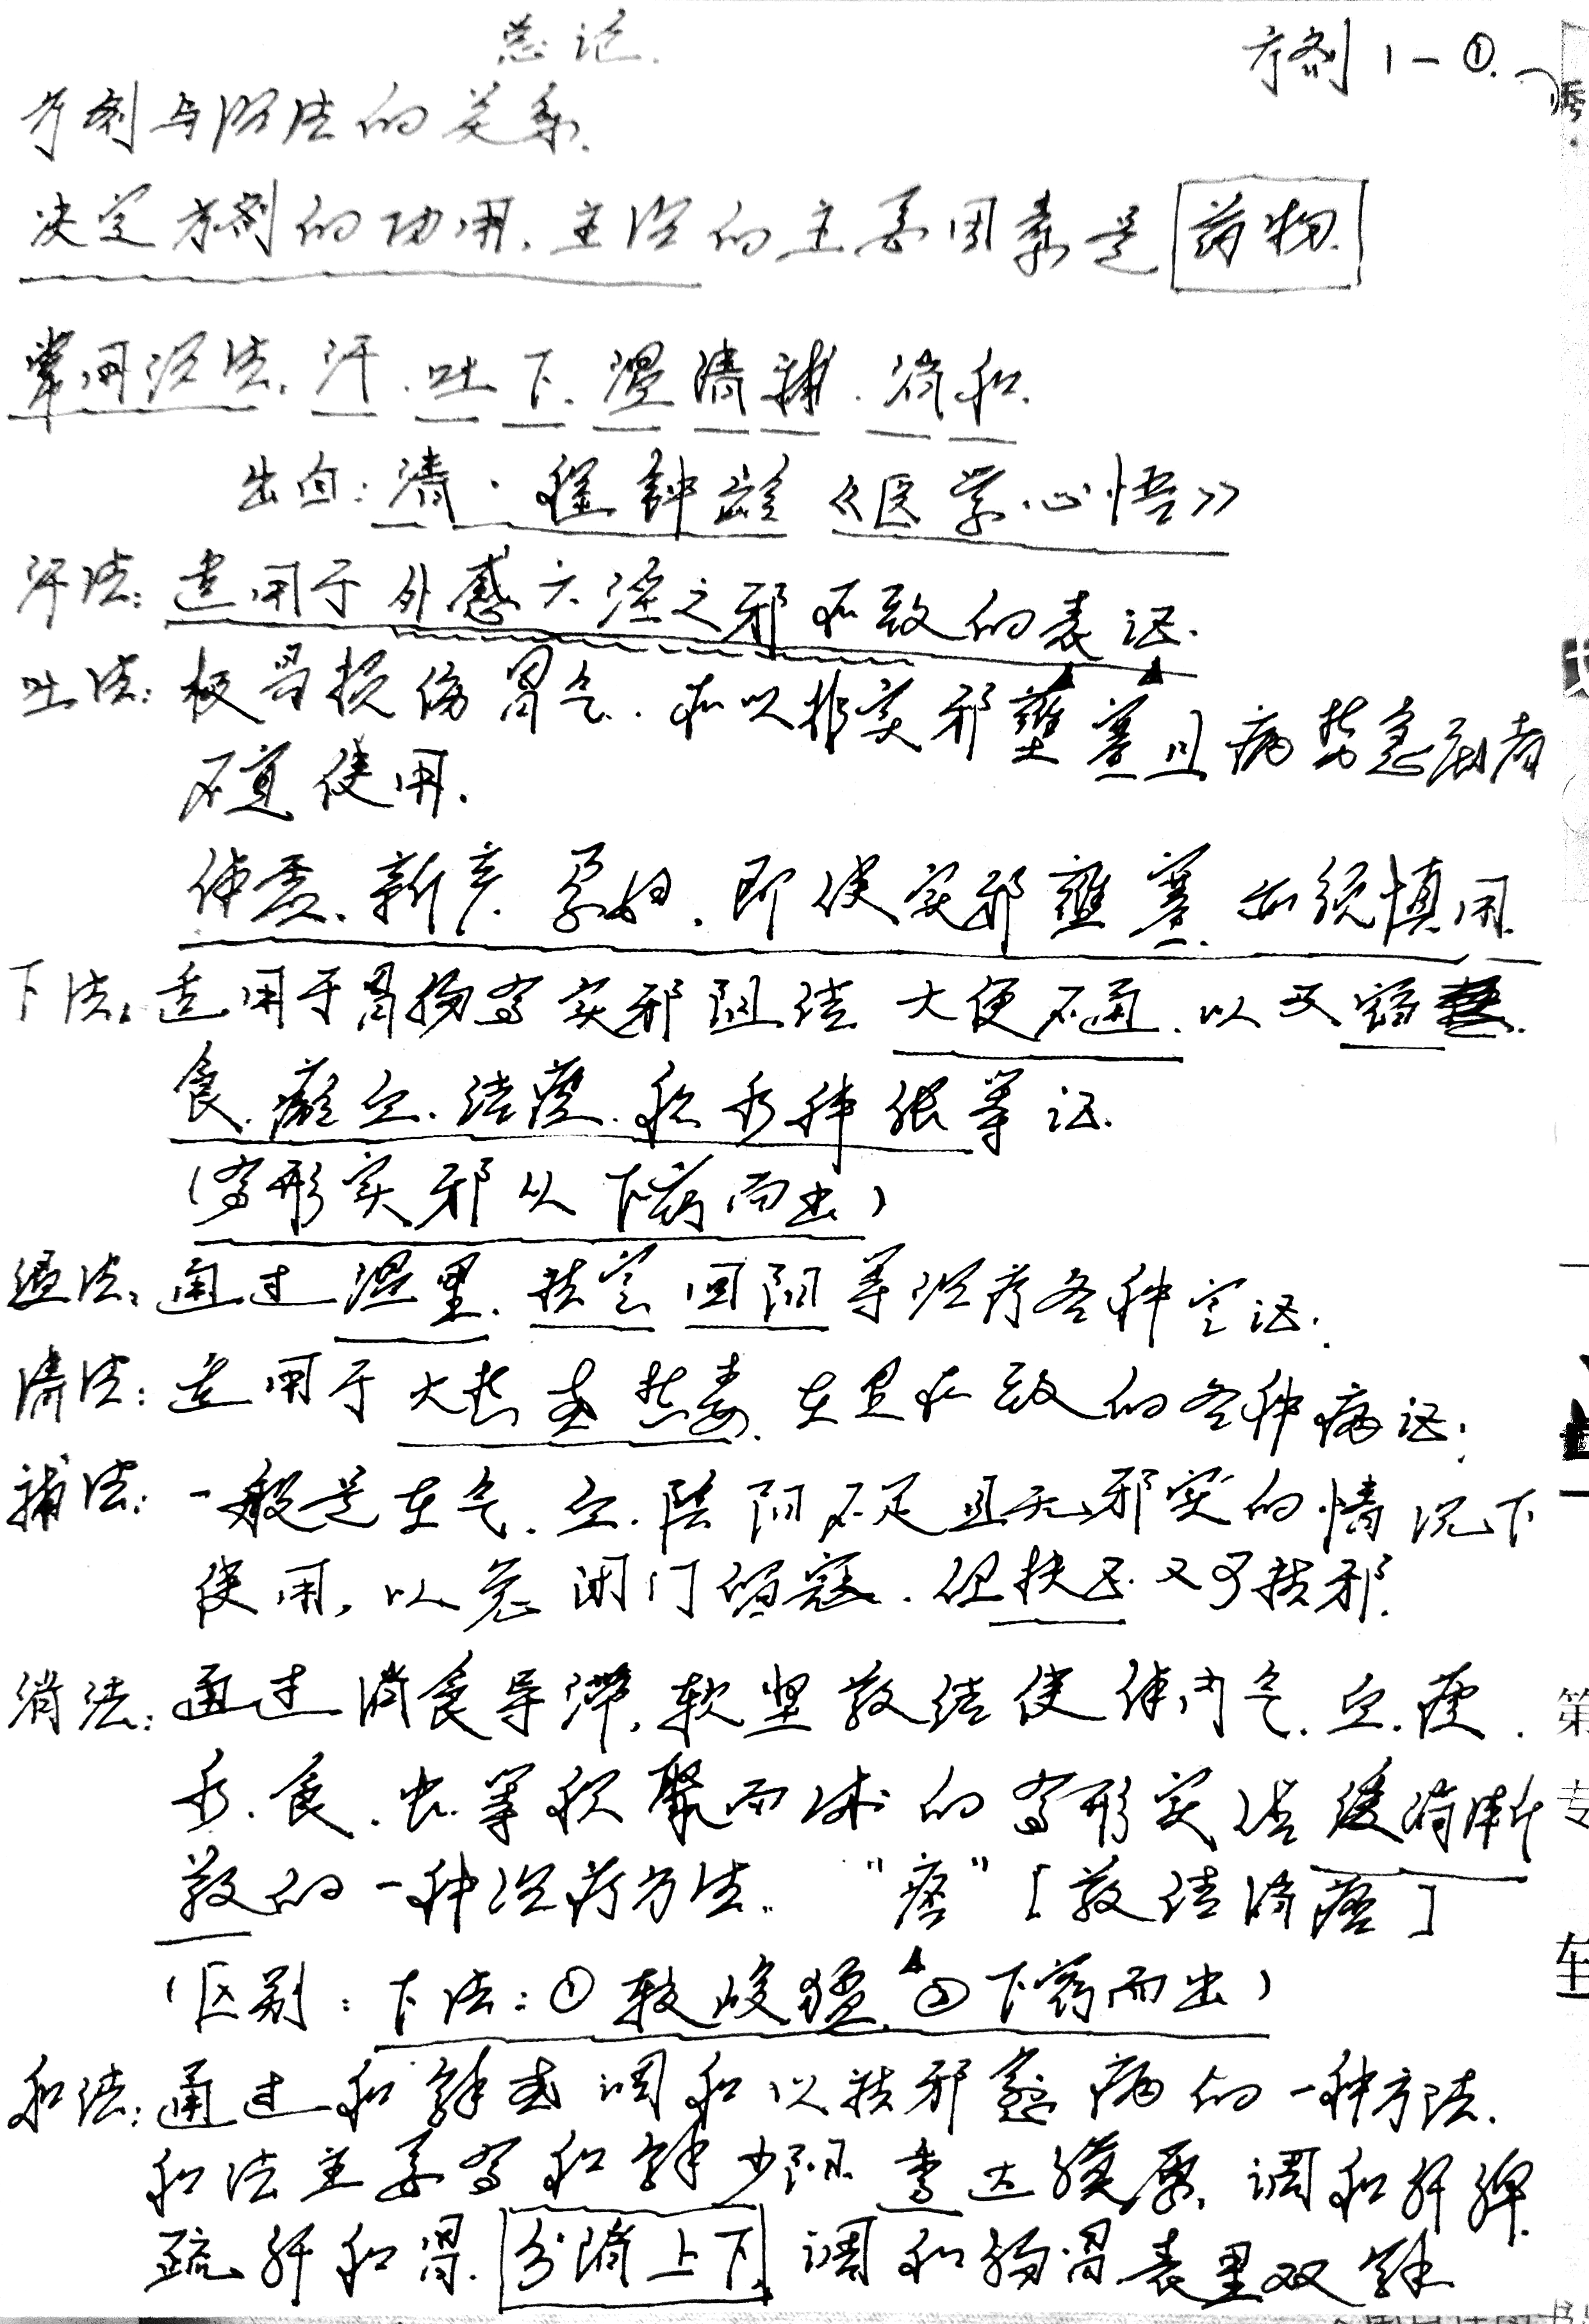 总论.
方剂 1-①.
方剂与治法的关系.
决定方剂的功用.主治的主要因素是 药物.
常用治法.汗.吐.下.温清補.消和.
出自:清·程钟龄《医学心悟》
汗法:适用于外感六淫之邪所致的表证.
吐法:极易损伤胃气.所以非实邪壅塞且病势急剧者
不宜使用.
体虚.新产.孕妇.即使实邪壅塞.也须慎用.
下法:适用于胃肠有实邪阻结 大便不通.以及宿
食.瘀血.结痰.积水肿胀等证.
(有形实邪从下窍而出)
温法:通过温里.祛寒 回阳等治疗各种寒证.
清法:适用于火热或热毒.在里所致的各种病证.
補法:一般是在气.血.陰阳不足且无邪实的情况下
使用,以免闭门留寇.但扶正.又可祛邪.
消法:通过消食导滞.软坚散结使体内气.血.痰.
水.食.虫.等积聚而成的有形实结 缓消渐
散的一种治疗方法. "痞" [散结消痞]
(区别:下法:①较峻猛.②下窍而出)
和法:通过和解或调和以祛邪愈病的一种方法.
和法主要有和解少阳.透达膜原.调和肝脾.
疏肝和胃.分消上下.调和肠胃.表里双解
第
专